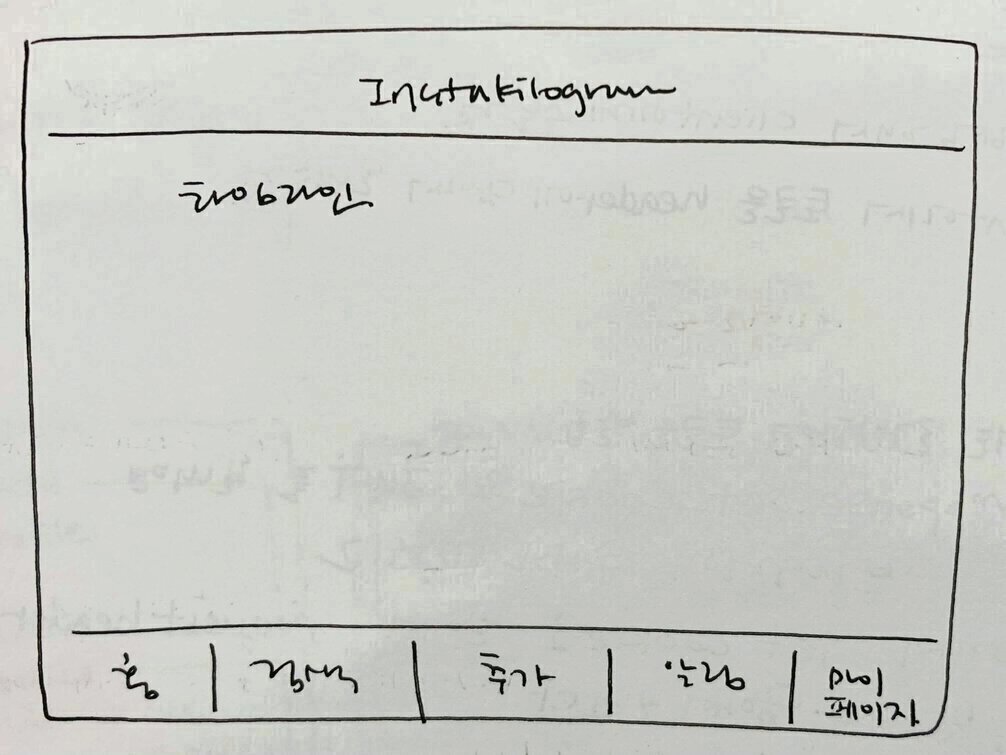 Instakilogram
타임라인
홈 | 검색 | 추가 | 알림 | 마이
페이지